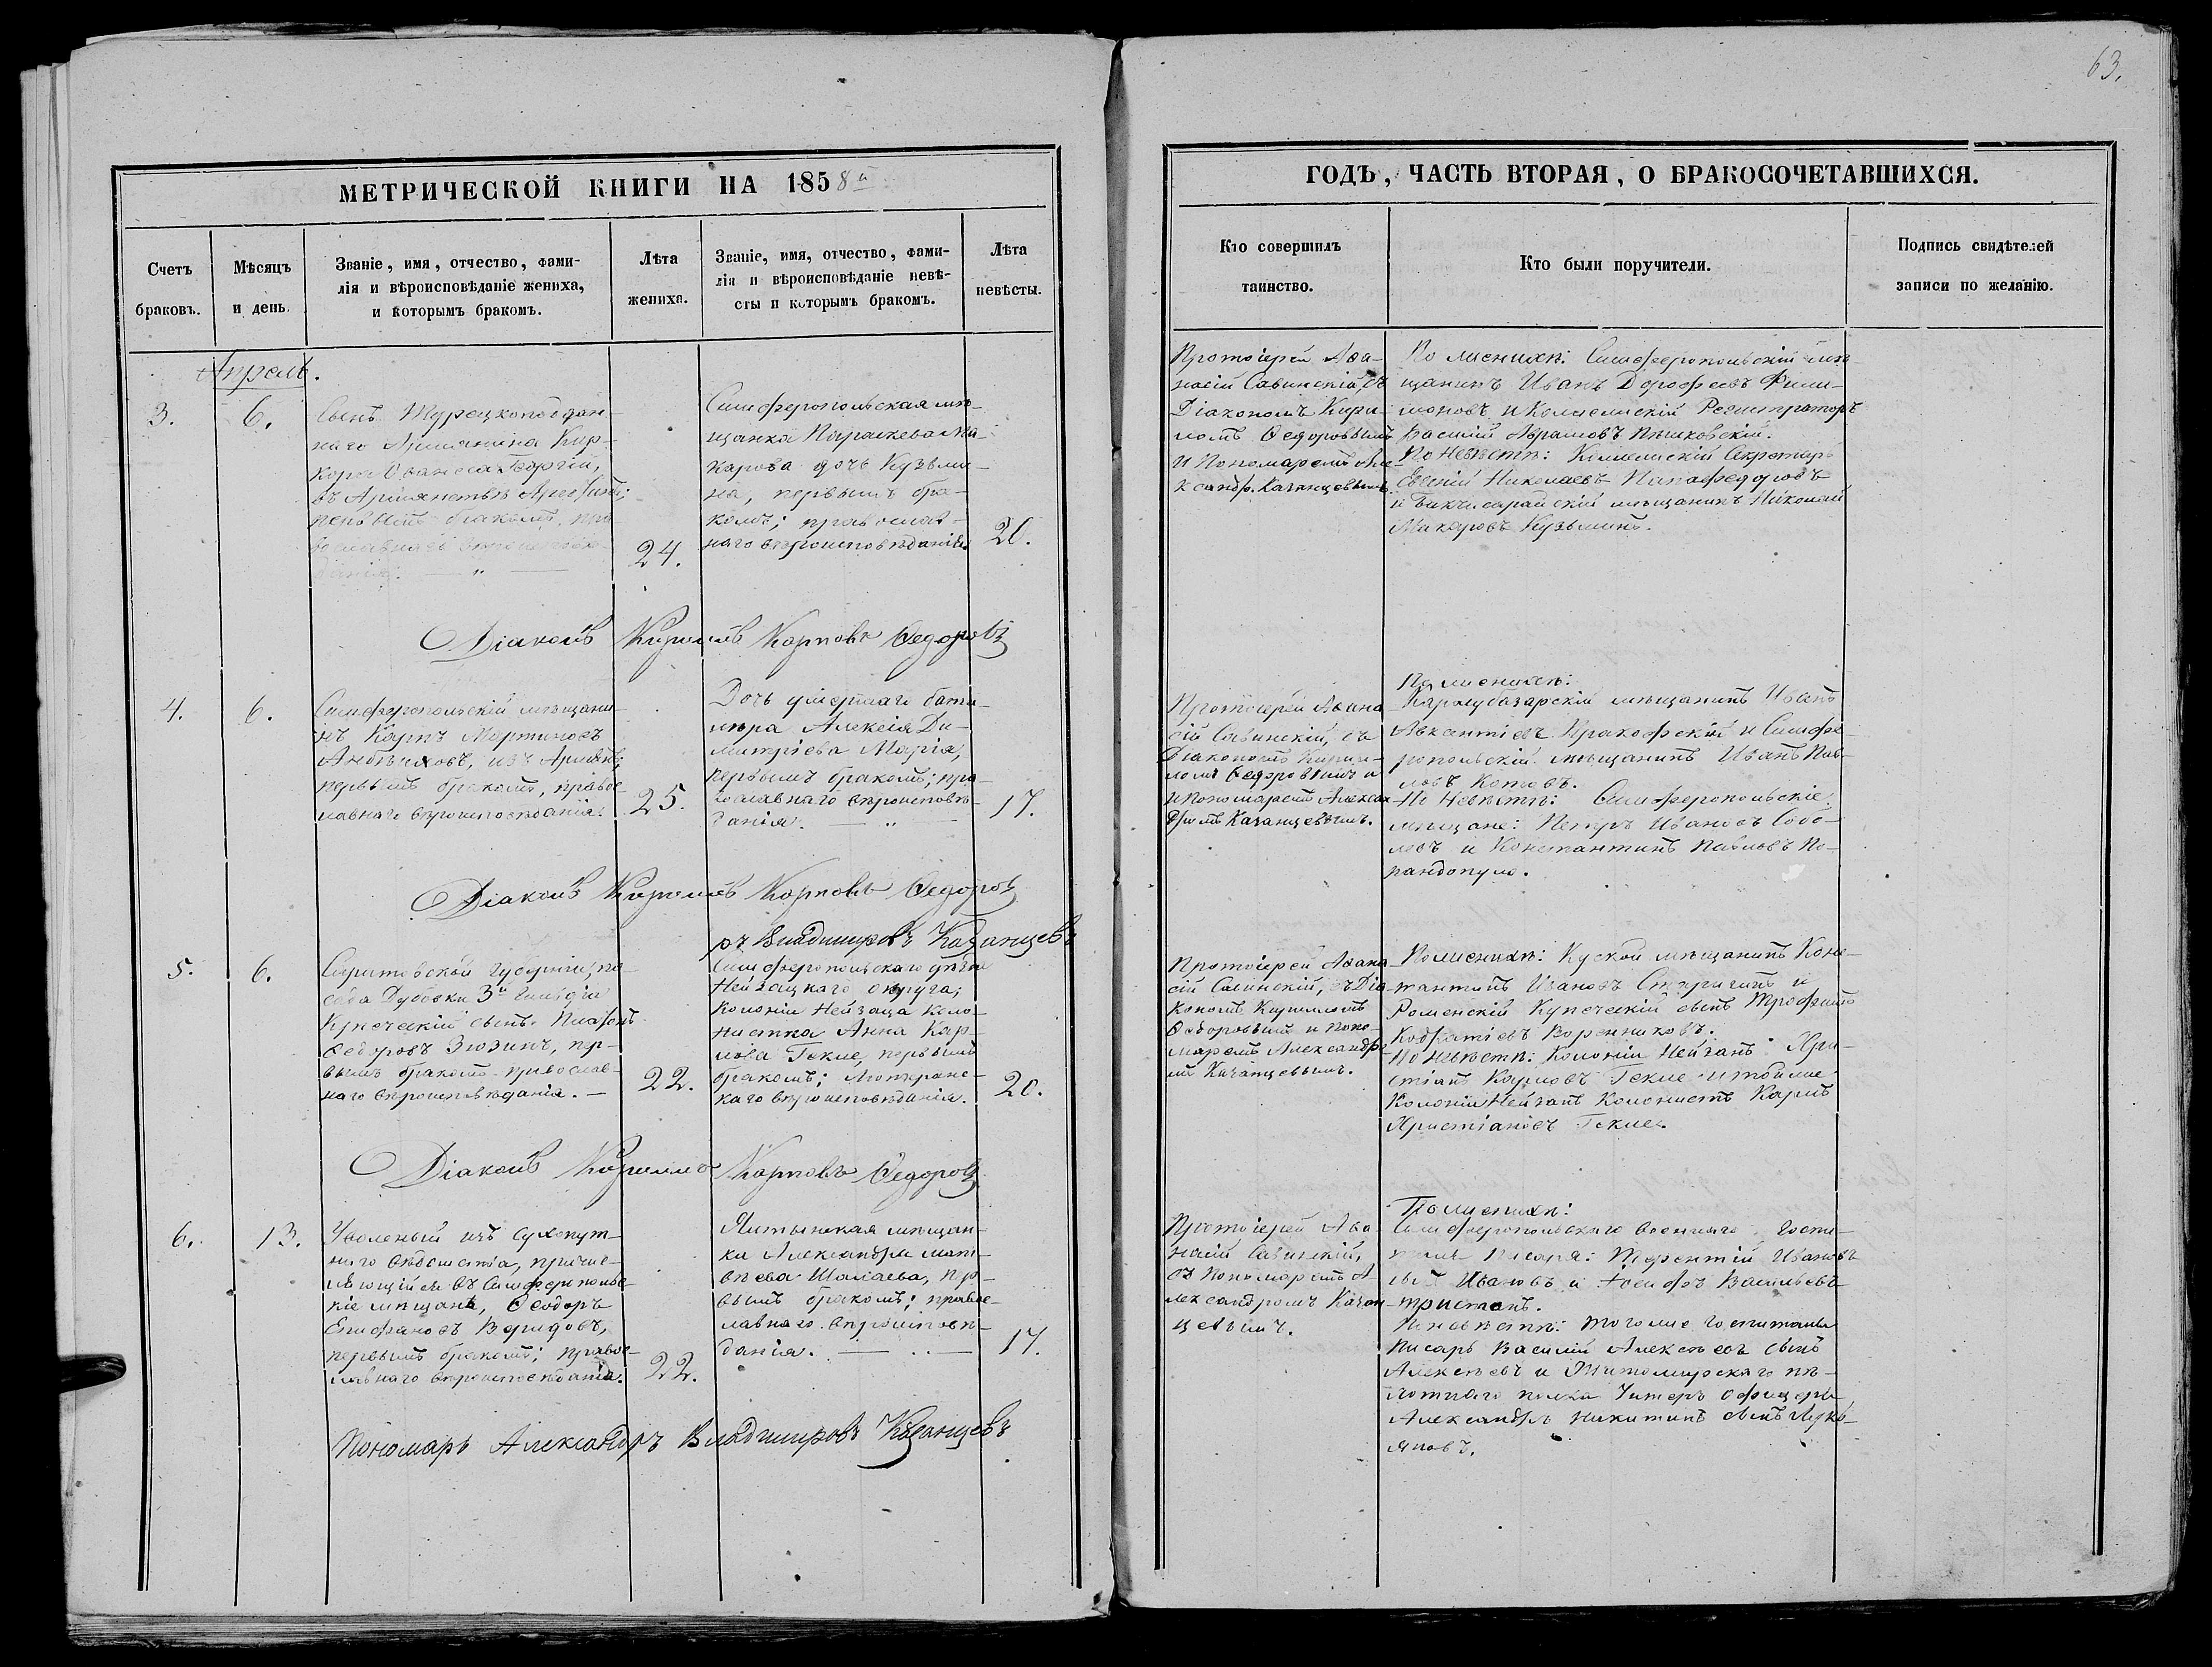 63.
МЕТРИЧЕСКОЙ КНИГИ НА 1858й
ГОДЪ, ЧАСТЬ ВТОРАЯ, О БРАКОСОЧЕТАВШИХСЯ.
Счетъ
браковъ.
Мѣсяцъ
и день.
Званіе, имя, отчество, фами-
лія и вѣроисповѣданіе жениха,
и которымъ бракомъ.
Лѣта
жениха.
Званіе, имя, отчество, фами-
лія и вѣроисповѣданіе невѣ-
сты и которымъ бракомъ.
Лѣта
невѣсты.
Кто совершилъ
таинство.
Кто были поручители.
Подпись свидѣтелей
записи по желанію.
Апрель.
3.
6.
Сынъ Турецкоподдан-
наго Армянина Кир-
кора Ованеса Георгій,
въ Армянствѣ
первымъ бракомъ, пра-
вославнаго вѣроисповѣ-
данія. — " —
24.
Симферопольская мѣ-
щанка Параскева Ма-
карова дочь Кузьми-
на, первымъ бра-
комъ; православ-
наго вѣроисповѣданія
20.
Протоіерей Аѳа-
насій Савинскій съ
Діакономъ Кири-
ломъ Ѳедоровымъ
и Пономаремъ Але-
ксандр. Казанцевымъ.
По женихѣ: Симферопольскій мѣ-
щанинъ Иванъ Дорофеевъ Фили-
моновъ и Коллежскій Регистраторъ
Василій Абрамовъ
По Невѣстѣ: Коллежскій Секретарь
Евгеній Николаевъ Папафедоровъ
и Бахчисарайскій мѣщанинъ Николай
Макаровъ Кузьминъ.
Діаконъ Кириллъ Карповъ Ѳедоровъ
4.
6.
Симферопольскій мѣщани-
нъ Карпъ Мартиновъ
из Армянъ,
первымъ бракомъ, правос-
лавнаго вѣроисповѣданія.
25.
Дочь умершаго
Алексія Ди-
митріева Марія,
первымъ бракомъ; пра-
вославнаго вѣроисповѣ-
данія. — " —
17.
Протоіерей Аѳана-
сій Савинскій, съ
Діакономъ Кирил-
ломъ Ѳедоровымъ и
и Пономаремъ Алексан-
дромъ Казанцевымъ.
По женихѣ:
Карасубазарскій мѣщанинъ Иванъ
Авксентіевъ и Симфе-
ропольскій мѣщанинъ Иванъ Пав-
ловъ Котовъ.
По Невѣстѣ: Симферопольскіе
мѣщане: Петръ Ивановъ Собо-
левъ и Константинъ Павловъ По-
пандопуло.
Діаконъ Кириллъ Карповъ Ѳедоровъ
ръ Владимировъ Казанцевъ
5.
6.
Саратовской губерніи, по-
сада Дубовки 3й гильдіи
Купеческій сынъ
Ѳедоровъ Зюзинъ, пер-
вымъ бракомъ православ-
наго вѣроисповѣданія. —
22.
Симферопольскаго уѣзда
Нейзацкаго округа;
Колоніи Нейзаца Коло-
нистка Анна Кар-
лова Гекле, первымъ
бракомъ; Лютеранс-
каго вѣроисповѣданія.
20.
Протоіерей Аѳана-
сій Савинскій, съ Діа-
кономъ Кирилломъ
Ѳедоровымъ и Поно-
маремъ Александро-
мъ Казанцевымъ.
По женихѣ: мѣщанинъ Конс-
тантинъ Ивановъ и
Роменскій Купеческій сынъ Трофимъ
Кодратіевъ
По Невѣстѣ: Колоніи Нейзацъ Хри-
стіанъ Карловъ Гекле и той же
Колоніи Нейзацъ Колонистъ Карлъ
Христіановъ Гекле.
Діаконъ Кириллъ Карповъ Ѳедоровъ
6.
13.
Уволеный изъ сухопут-
наго вѣдомства, причис-
ляющійся въ Симферопольс-
кіе мѣщане, Ѳеодоръ
Епифановъ
первымъ бракомъ; правос-
лавнаго вѣроисповѣданія.
22.
Ялтынская мѣщан-
ка Александра Мат-
вѣева Шалаева, пер-
вымъ бракомъ; правос-
лавнаго вѣроисповѣ-
данія. — " —
17.
Протоіерей Аѳа-
насій Савинскій,
съ Пономаремъ А-
лександромъ Казан-
цевымъ.
По женихѣ:
Симферопольскаго военнаго госпи-
таля писаря: Терентій Ивановъ
сынъ Ивановъ и Іосифъ Васильевъ
По невѣстѣ: того же госпиталя
писарь Василій Алексѣевъ сынъ
Алексѣевъ и Житомирскаго пѣ-
хотнаго полка Унтеръ офицеръ
Александръ Никитинъ сынъ
Пономарь Александръ Владимировъ Казанцевъ